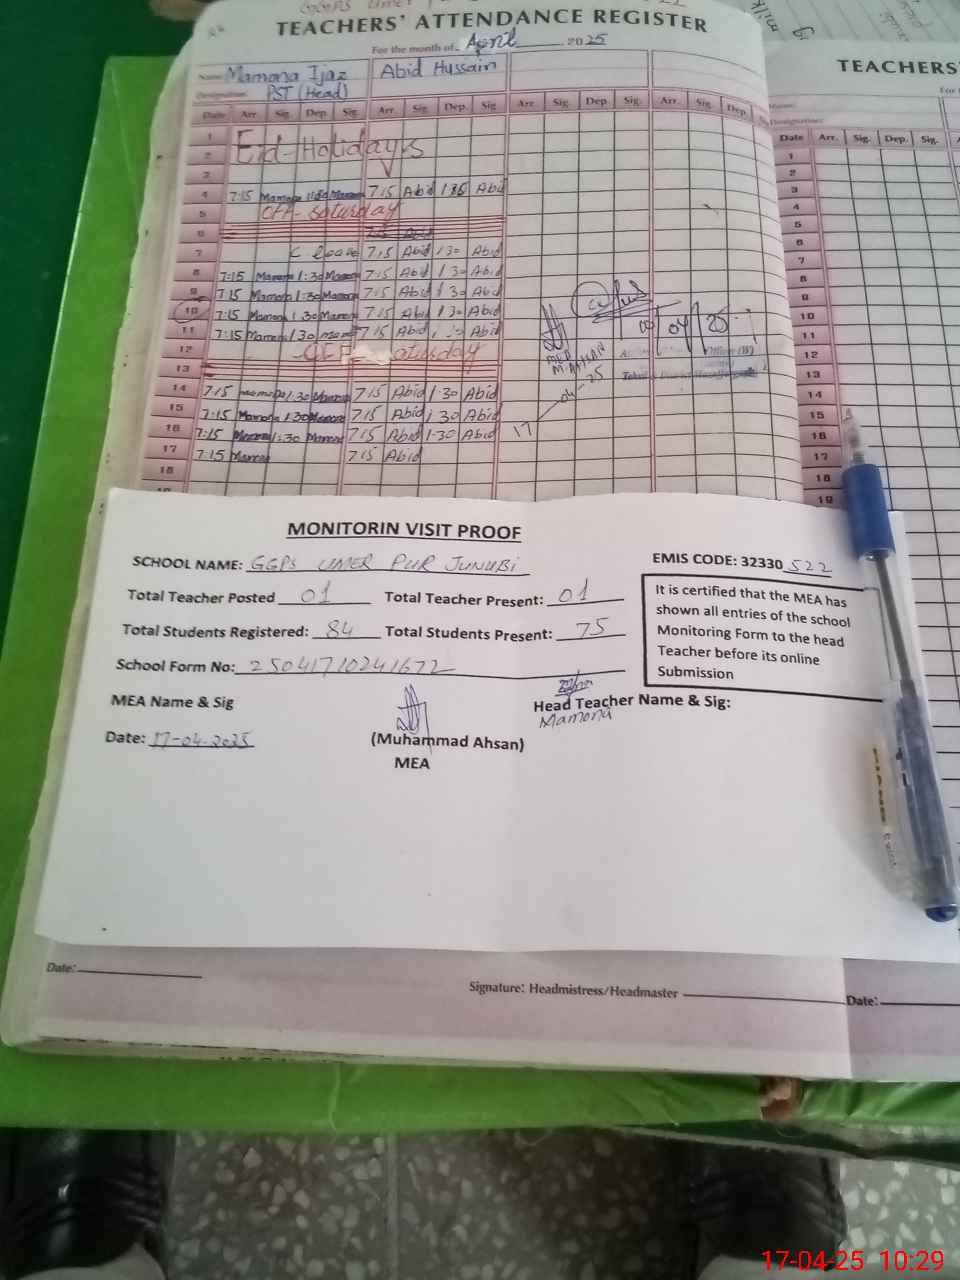 TEACHERS' ATTENDANCE REGISTER
For the month of April 2025
Name: Mamona Ijaz Abid Hussain
Designation: PST (Head)
Date Arr. Sig. Dep. Sig. Arr. Sig. Dep. Sig Arr. Sig. Dep. Sig. Arr. Sig. Dep.
1
2 Eid-Holidays
3
4 7:15 Mamona Mamona 7:15 Abid Abid
5 OFF- Saturday
6
7 C. leave 7,15 Abid 1 30 Abid
8 7:15 Mamona 1:30 Mamona 7:15 Abid 1 30 Abid
9 7 15 Mamona 1:30 Mamona 7:15 Abid 1 30 Abid
10 7:15 Mamona 1:30 Mamona 7:15 Abid 1:30 Abid
11 7:15 Mamona 1:30 7:15 Abid Abid
12 Saturday
13
14 7:15 1:30 Mamona 7:15 Abid 1 30 Abid
15 7:15 Mamona 1:30 Mamona 7:15 Abid 1 30 Abid
16 7:15 Mamona 1:30 Mamona 7:15 Abid 1-30 Abid
17 7:15 Mamona 7:15 Abid
18
09/04/25
MEA
M. AHSAN
17-04-25
TEACHERS'
Name:
Designation:
Date Arr. Sig. Dep. Sig.
1
2
3
4
5
6
7
8
9
10
11
12
13
14
15
16
17
18
19
MONITORIN VISIT PROOF
SCHOOL NAME: GGPS UMER PUR JUNUBI EMIS CODE: 32330 522
Total Teacher Posted 01 Total Teacher Present: 01
Total Students Registered: 84 Total Students Present: 75
School Form No: 25041710241672
It is certified that the MEA has
shown all entries of the school
Monitoring Form to the head
Teacher before its online
Submission
MEA Name & Sig Head Teacher Name & Sig:
Mamona
Date: 17-04-2025 (Muhammad Ahsan)
MEA
Date:
Signature: Headmistress/Headmaster
Date:
PIANO
17-04-25 10:29